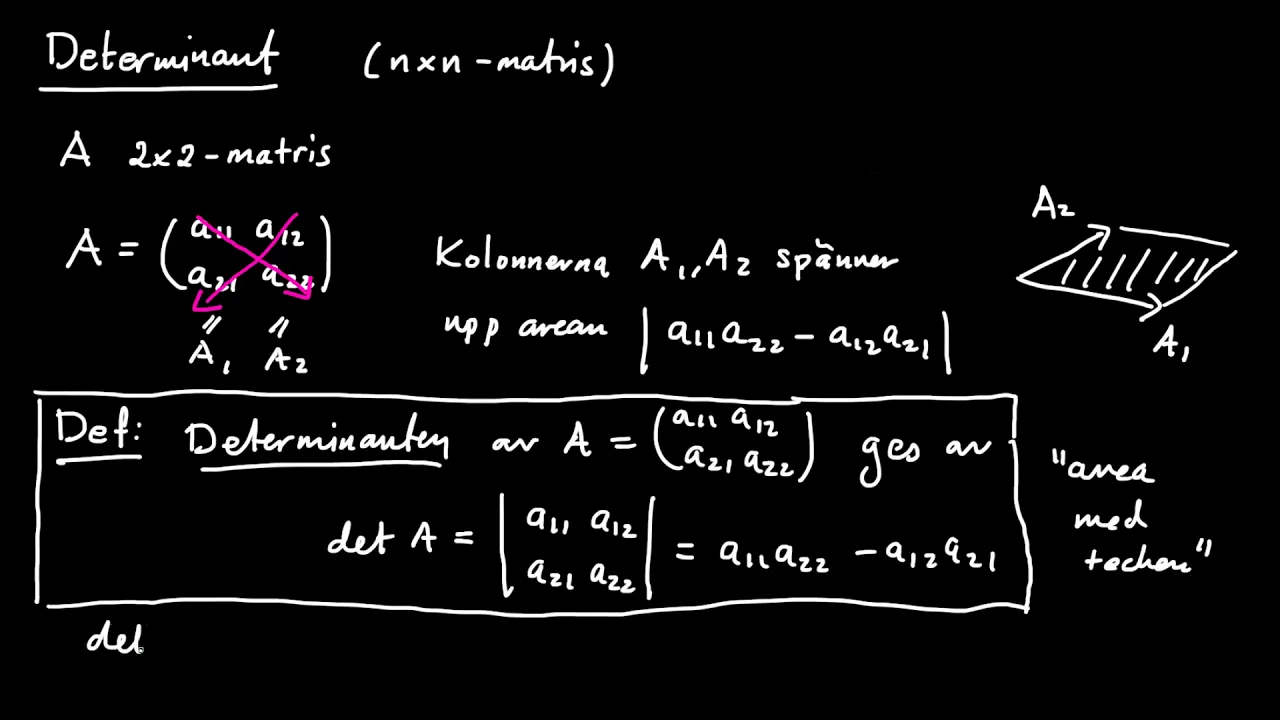 Determinant (n×n-matris)
A 2×2-matris
A = (a₁₁ a₁₂
a₂₁ a₂₂)
" "
A₁ A₂
Kolonnerna A₁, A₂ spänner
upp arean | a₁₁a₂₂ - a₁₂a₂₁ |
A₂
A₁
Def: Determinanten av A = (a₁₁ a₁₂
a₂₁ a₂₂) ges av
det A = | a₁₁ a₁₂
a₂₁ a₂₂ | = a₁₁a₂₂ - a₁₂a₂₁
"area
med
tecken"
det